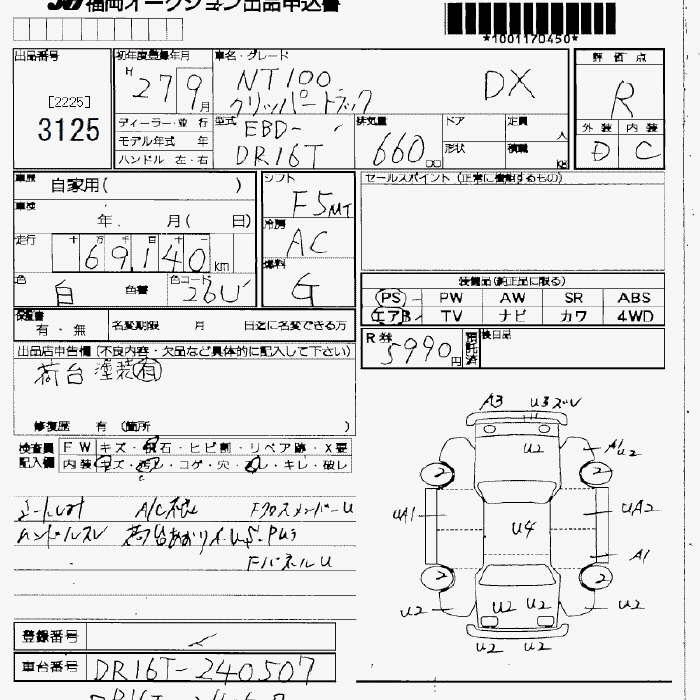 福岡オークション出品申込書
*1001170450*
出品番号
[2225]
3125
初年度登録年月
H 27 9月
ディーラー・並行
モデル年式 年
ハンドル 左・右
車名・グレード
NT100
クリッパートラック DX
型式
EBD-
DR16T
排気量
660 cc
ドア
定員 人
形状
積載 kg
評価点
R
外装 内装
D C
車歴 自家用( )
車検
年 月( 日)
走行 十 万 千 百 十 一
69,140 km
色 白 色番 色コード 26U
シフト
F5MT
冷房
AC
燃料
G
セールスポイント (正常に機能するもの)
装備品(純正品に限る)
PS PW AW SR ABS
エアB TV ナビ カワ 4WD
保証書
有・無 名変期限 月 日迄に名変できる方
R券 5990円 預託済 後日品
出品店申告欄(不良内容・欠品など具体的に記入して下さい)
荷台塗装有
修復歴 有 (箇所 )
検査員 FW キズ・飛石・ヒビ割・リペア跡・X要
記入欄 内装 キズ・汚れ・コゲ・穴・スレ・キレ・破レ
FクロスメンバーU
ハンドルスレ
FパネルU
A3 U3
U2
A1 U2
2 2
UA1 U4 UA2
A1
2 2
U2 U2 U2 U2
U2 U2
登録番号
車台番号 DR16T-240507